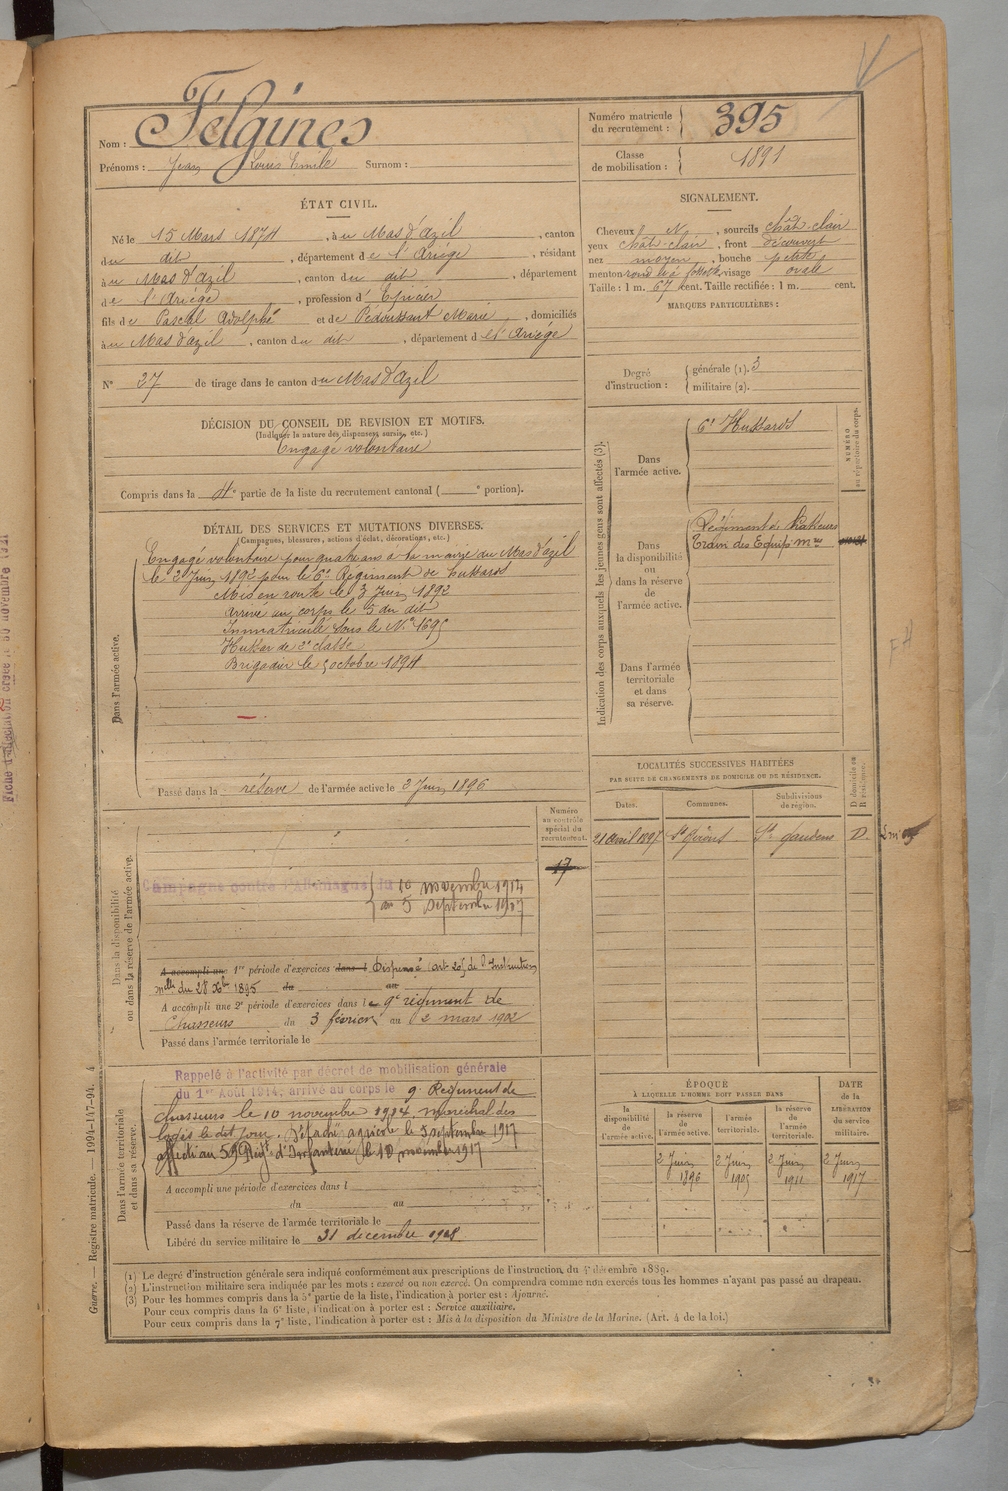 Nom : Félgines
Prénoms : Jean Louis Emile Surnom :
Numéro matricule du recrutement : 395
Classe de mobilisation : 1891
ÉTAT CIVIL.
Né le 15 Mars 1874, à u Mas d'azil, canton
du dit, département de l'Ariège, résidant
à u Mas d'azil, canton du dit, département
de l'Ariège, profession d' Epicier
fils de Pascal Adolphe et de Pédoussant Marie, domiciliés
à u Mas d'azil, canton du dit, département de l'Ariége
N° 27 de tirage dans le canton du Mas d'Azil
SIGNALEMENT.
Cheveux N, sourcils chât-clair
yeux chât-clair, front découvert
nez moyen, bouche petite
menton rond à fossette, visage ovale
Taille : 1 m. 67 cent. Taille rectifiée : 1 m. cent.
MARQUES PARTICULIÈRES :
Degré d'instruction : générale (1). 3
militaire (2).
DÉCISION DU CONSEIL DE REVISION ET MOTIFS.
(Indiquer la nature des dispenses, sursis, etc.)
Engagé volontaire
Compris dans la 4e partie de la liste du recrutement cantonal ( e portion).
DÉTAIL DES SERVICES ET MUTATIONS DIVERSES.
(Campagnes, blessures, actions d'éclat, décorations, etc.)
Dans l'armée active.
Engagé volontaire pour quatre ans à la mairie du Mas d'azil
le 2 Juin 1892 pour le 6e Régiment de hussards
Mis en route le 3 Juin 1892
Arrivé au corps le 5 du dit
Immatriculé sous le N° 1695
Hussar de 2e classe
Brigadier le 5 octobre 1894
Passé dans la réserve de l'armée active le 2 Juin 1896
Indication des corps auxquels les jeunes gens sont affectés (3).
NUMÉRO au répertoire du corps.
Dans l'armée active.
6e Hussards
Dans la disponibilité ou dans la réserve de l'armée active.
Régiment de Chasseurs
Train des Equip. mres
Dans l'armée territoriale et dans sa réserve.
FH
LOCALITÉS SUCCESSIVES HABITÉES
PAR SUITE DE CHANGEMENTS DE DOMICILE OU DE RÉSIDENCE.
Dates. Communes. Subdivisions de région. D domicile ou R résidence.
21 avril 1897 St Girons St gaudens D
Dans la disponibilité ou dans la réserve de l'armée active.
Numéro au contrôle spécial du recrutement.
17
Campagne contre l'Allemagne du 10 novembre 1914
au 5 Septembre 1917
A accompli une 1re période d'exercices dans l Dispensé (art 20) de l'Instruction
mlle du 28 Xbre 1895 du au
A accompli une 2e période d'exercices dans le 9e régiment de
Chasseurs du 3 février au 2 mars 1902
Passé dans l'armée territoriale le
Dans l'armée territoriale et dans sa réserve.
Rappelé à l'activité par décret de mobilisation générale
du 1er Août 1914, arrivé au corps le 9e Régiment de
chasseurs le 10 novembre 1914. maréchal des
logis le dit jour. Détaché agricole le 5 septembre 1917
affecté au 59e Régt d'Infanterie le 10 novembre 1917
A accompli une période d'exercices dans l
du au
Passé dans la réserve de l'armée territoriale le
Libéré du service militaire le 31 decembre 1918
ÉPOQUE
À LAQUELLE L'HOMME DOIT PASSER DANS
DATE de la LIBÉRATION du service militaire.
la disponibilité de l'armée active. la réserve de l'armée active. l'armée territoriale. la réserve de l'armée territoriale.
2 Juin 1896 2 Juin 1905 2 Juin 1911 2 Juin 1917
(1) Le degré d'instruction générale sera indiqué conformément aux prescriptions de l'instruction du 4 décembre 1889.
(2) L'instruction militaire sera indiquée par les mots : exercé ou non exercé. On comprendra comme non exercés tous les hommes n'ayant pas passé au drapeau.
(3) Pour les hommes compris dans la 5e partie de la liste, l'indication à porter est : Ajourné.
Pour ceux compris dans la 6e liste, l'indication à porter est : Service auxiliaire.
Pour ceux compris dans la 7e liste, l'indication à porter est : Mis à la disposition du Ministre de la Marine. (Art. 4 de la loi.)
Guerre. — Registre matricule. — 1994-147-94. 4